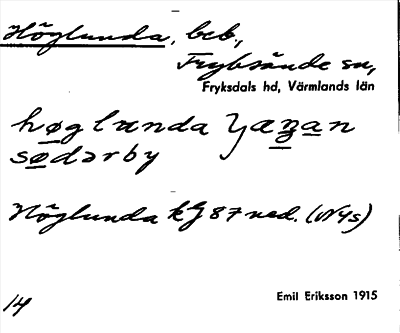 Höglunda, beb.,
Fryksände sn,
Fryksdals hd, Värmlands län
høglunda
sødərby
Höglunda kg 87 ned. (Nys)
14
Emil Eriksson 1915